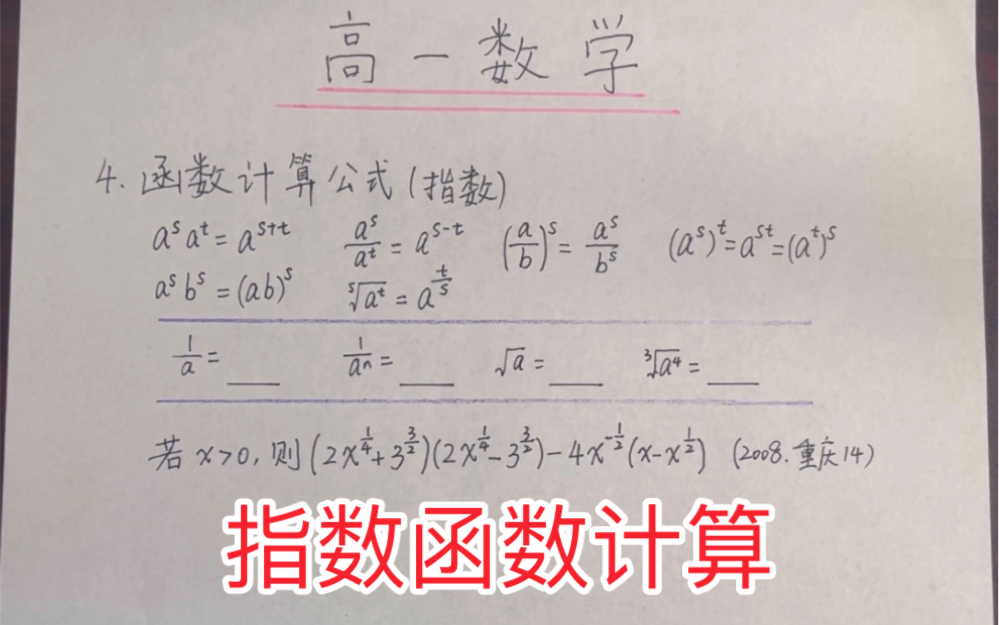 高一数学
4. 函数计算公式(指数)
aˢaᵗ=aˢ⁺ᵗ  aˢ/aᵗ=aˢ⁻ᵗ  (a/b)ˢ=aˢ/bˢ  (aˢ)ᵗ=aˢᵗ=(aᵗ)ˢ
aˢbˢ=(ab)ˢ  ˢ√aᵗ=a^(t/s)
1/a=___  1/aⁿ=___  √a=___  ³√a⁴=___
若x>0,则(2x^(1/4)+3^(3/2))(2x^(1/4)-3^(3/2))-4x^(-1/2)(x-x^(1/2)) (2008.重庆14)
指数函数计算